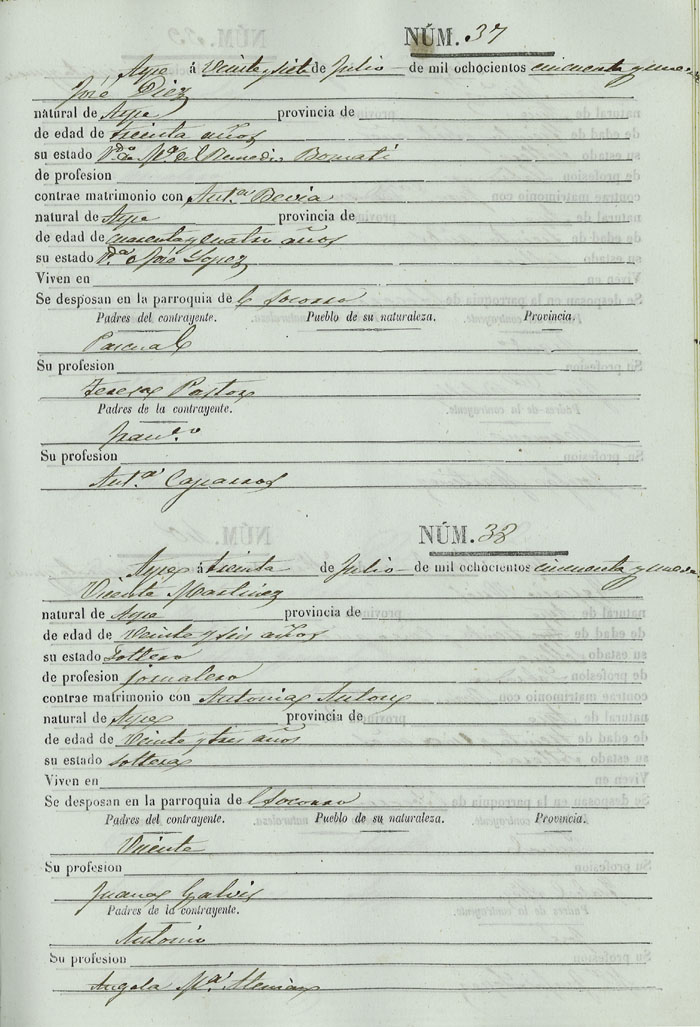 NÚM. 37
Aspe á Veinte y siete de Julio de mil ochocientos cincuenta y nueve
José Diez
natural de Aspe provincia de
de edad de treinta años
su estado V.do de M.a del Remedio
de profesion
contrae matrimonio con Ant.a Bevia
natural de Aspe provincia de
de edad de cuarenta y cuatro años
su estado V.da José Lopez
Viven en
Se desposan en la parroquia del Socorro
Padres del contrayente. Pueblo de su naturaleza. Provincia.
Pascual
Su profesion
Teresa Pastor
Padres de la contrayente.
Fran.co
Su profesion
Ant.a
NÚM. 38
Aspe á treinta de Julio de mil ochocientos cincuenta y nueve
Vicente Martinez
natural de Aspe provincia de
de edad de Veinte y seis años
su estado soltero
de profesion jornalero
contrae matrimonio con Antonia Anton
natural de Aspe provincia de
de edad de Veinte y tres años
su estado soltera
Viven en
Se desposan en la parroquia del Socorro
Padres del contrayente. Pueblo de su naturaleza. Provincia.
Vicente
Su profesion
Juana Galvis
Padres de la contrayente.
Antonio
Su profesion
Angela M.a